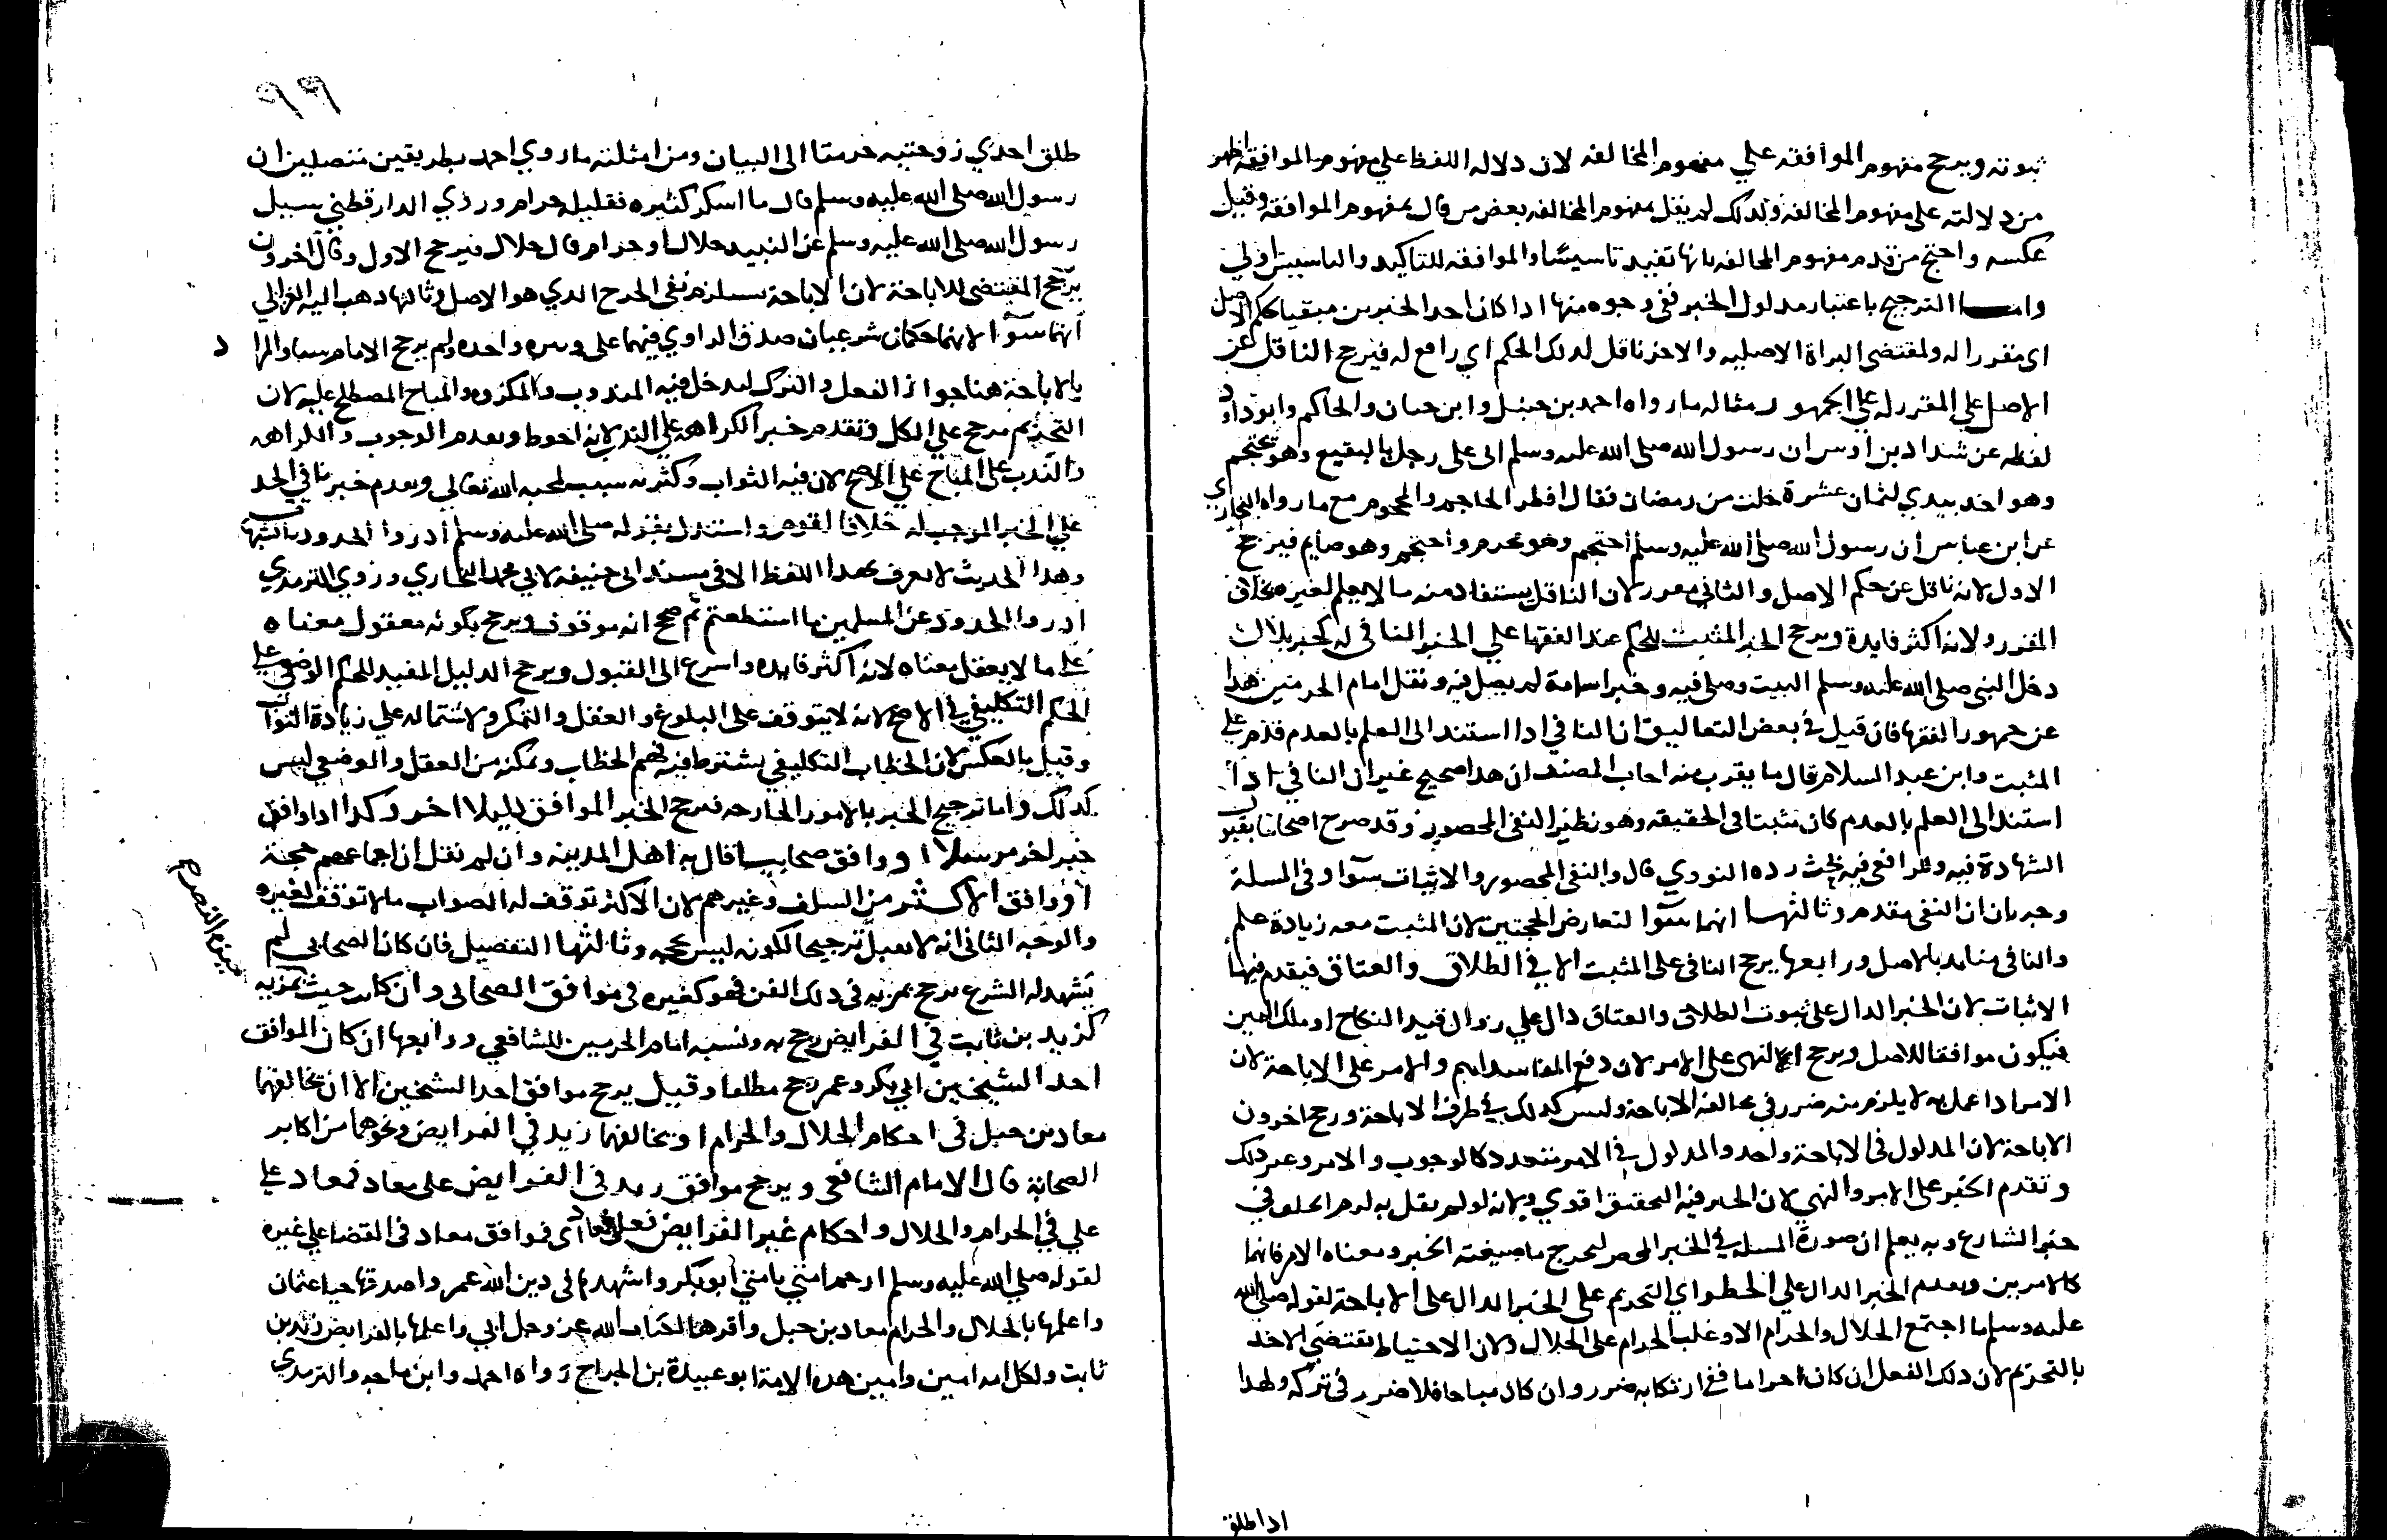 ثبوته ويرجح مفهوم الموافقه علي مفهوم المخالفه لان دلاله اللفظ علي مفهوم الموافقه اظهر
من دلالته علي مفهوم المخالفه ولدلك لم يقل بمفهوم المخالفه بعض من قال بمفهوم الموافقه وقيل
عكسه واحتج من قدم مفهوم المخالفه بانها تفيد تاسيسا والموافقه للتاكيد والتاسيس اولي
واما الترجيح باعتبار مدلول الخبر ففي وجوه منها ادا كان احد الخبرين مبقيا لحكم الاصل
اي مقررا له ولمقتضى البراة الاصليه والاخر ناقل لدلك الحكم اي رافع له فيرجح الناقل عن
الاصل علي المقرر له علي الجمهور ومثاله ما رواه احمد بن حنبل وابن حبان والحاكم وابو داود
لفظه عن شداد بن اوس ان رسول الله صلى الله عليه وسلم اتى على رجل بالبقيع وهو يحتجم
وهو اخد بيدي لثمان عشرة خلت من رمضان فقال افطر الحاجم والمحجوم مع ما رواه البخاري
عن ابن عباس ان رسول الله صلى الله عليه وسلم احتجم وهو محرم واحتجم وهو صايم فيرجح
الاول لانه ناقل عن حكم الاصل والثاني مقرر لان الناقل يستفاد منه ما لا يعلم لغيره بخلاف
المقرر ولانه اكثر فايدة ويرجح الخبر المثبت للحكم عند الفقها علي الخبر النافي له كخبر بلال
دخل النبي صلى الله عليه وسلم البيت وصلى فيه وخبر اسامة لم يصل فيه ونقل امام الحرمين هدا
عن جمهور الفقها فان قيل في بعض التعاليق ان النافي ادا استند الى العلم بالعدم قدم علي
المثبت وابن عبد السلام قال ما يقرب منه اجاب المصنف ان هدا صحيح غير ان النافي ادا
استند الى العلم بالعدم كان مثبتا في الحقيقه وهو نظير النفي المحصور وقد صرح اصحابنا بقبول
الشهادة فيه وللرافعي فيه بحث رده النووي قال والنفي المحصور والاثبات سوا وفي المسلة
وجهان ان النفي مقدم وثالثها انهما سوا لتعارض الحجتين لان المثبت معه زيادة علم
والنافي متايد بالاصل ورابعها يرجح النافي على المثبت الا في الطلاق والعتاق فيقدم فيهما
الاثبات لان الخبر الدال على ثبوت الطلاق والعتاق دال علي زوال قيد النكاح او ملك اليمين
فيكون موافقا للاصل ويرجح النهي على الامر لان دفع المفاسد اهم والامر على الاباحة لان
الامر ادا عمل به لا يلزم منه ضرر في مخالفه الاباحة وليس كدلك في طرف الاباحة ورجح اخرون
الاباحة لان المدلول في الاباحة واحد والمدلول في الامر متعدد كالوجوب والامر وغير دلك
وتقدم الخبر على الامر والنهي لان الخبر فيه التحقيق اقوي ولانه لو لم يقل به لزم الخلف في
خبر الشارع وبه يعلم ان صورة المسله في الخبر المحض ليخرج ما صيغته الخبر ومعناه الامر فانهما
كالامرين ويقدم الخبر الدال علي الحظر اي التحريم علي الخبر الدال على الاباحة لقوله صلى الله
عليه وسلم ما اجتمع الحلال والحرام الا وغلب الحرام على الحلال ولان الاحتياط يقتضي الاخد
بالتحريم لان دلك الفعل ان كان حراما ففي ارتكابه ضرر وان كان مباحا فلا ضرر في تركه ولهدا
ادا طلق
طلق احدي زوجتيه حرمتا الى البيان ومن امثلته ما روي احمد بطريقين متصلين ان
رسول الله صلى الله عليه وسلم قال ما اسكر كثيره فقليله حرام وروي الدارقطني سيل
رسول الله صلى الله عليه وسلم عن النبيد حلال او حرام قال حلال فيرجح الاول وقال اخرون
يرجح المقتضى للاباحة لان الاباحة تستلزم نفي الحرج الدي هو الاصل وثالثها دهب اليه الغزالي
انهما سوا لانهما حكمان شرعيان صدق الراوي فيهما على وتيره واحده ولم يرجح الامام شيا والمراد
بالاباحة هنا جواز الفعل والترك ليدخل فيه المندوب والمكروه والمباح المصطلح عليه لان
التحريم مرجح علي الكل وتقدم خبر الكراهه علي الندب لانه احوط ويقدم الوجوب والكراهه
والندب على المباح علي الاصح لان فيه الثواب وكثرته سبب لمحبه الله تعالي ويقدم خبر نافي الحد
علي الخبر الموجب له خلافا لقوم واستدل بقوله صلى الله عليه وسلم ادروا الحدود بالشبهات
وهدا الحديث لا يعرف بهدا اللفظ الا في مسند ابي حنيفه لابي محمد البخاري وروي الترمدي
ادروا الحدود عن المسلمين ما استطعتم ثم صحح انه موقوف ويرجح بكونه معقول معناه
علي ما لا يعقل معناه لانه اكثر فايده واسرع الى القبول ويرجح الدليل المفيد للحكم الوضعي على
الحكم التكليفي في الاصح لانه لا يتوقف على البلوغ والعقل والتمكن ولاشتماله علي زيادة الثواب
وقيل بالعكس لان الخطاب التكليفي يشترط فيه فهم الخطاب وتمكنه من العقل والوضعي ليس
كدلك واما ترجيح الخبر بالامور الخارجه فيرجح الخبر الموافق دليلا اخر وكدا ادا وافق
خبر اخر مرسلا او وافق صحابيا قال به اهل المدينه وان لم نقل ان اجماعهم حجة
او وافق الاكثر من السلف وغيرهم لان الاكثر توفق له الصواب ما لا توفق لغيره
والوجه الثاني انه لا يقبل ترجيحا لكونه ليس بحجه وثالثها التفصيل فان كان الصحابي لم
يشهد له الشرع مرجح بمزيه في دلك الفن فهو كغيره في موافق الصحابي وان كان حيث تميزه
كزيد بن ثابت في الفرايض رجح به ونسبه امام الحرمين للشافعي ورابعها ان كان الموافق
احدا الشيخين ابي بكر وعمر رجح مطلقا وقيل يرجح موافق احد الشيخين الا ان تخالفهما
معاد بن جبل في احكام الحلال والحرام او يخالفهما زيد في الفرايض ونحوهما من اكابر
الصحابة قال الامام الشافعي ويرجح موافق زيد في الفرايض على معاد فمعاد على
علي في الحرام والحلال واحكام غير الفرايض فعلى معاد اي فموافق معاد في القضا علي غيره
لقوله صلي الله عليه وسلم ارحم امتي بامتي ابو بكر واشدهم في دين الله عمر واصدقها حيا عثمان
واعلمها بالحلال والحرام معاد بن جبل واقرها لكتاب الله عز وجل ابي واعلمها بالفرايض زيد بن
ثابت ولكل امه امين وامين هده الامة ابو عبيدة بن الجراح رواه احمد وابن ماجه والترمدي